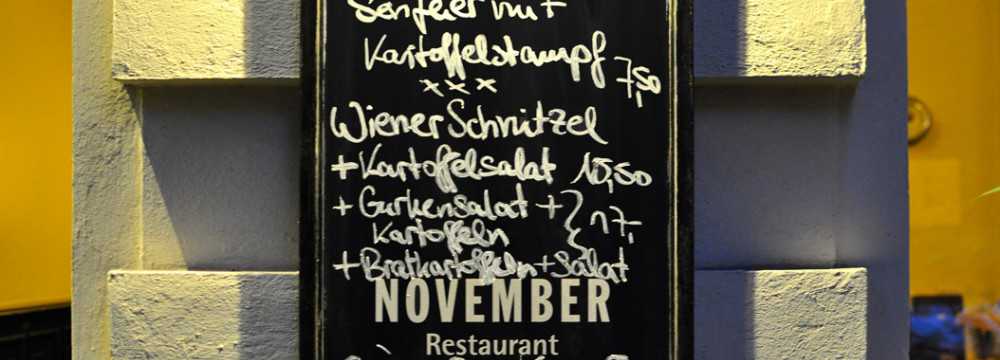 Senfeier mit
Kartoffelstampf 7,50
xxx
Wiener Schnitzel
+ Kartoffelsalat 15,50
+ Gurkensalat + } 17,-
Kartoffeln
+ Bratkartoffeln + Salat
NOVEMBER
Restaurant